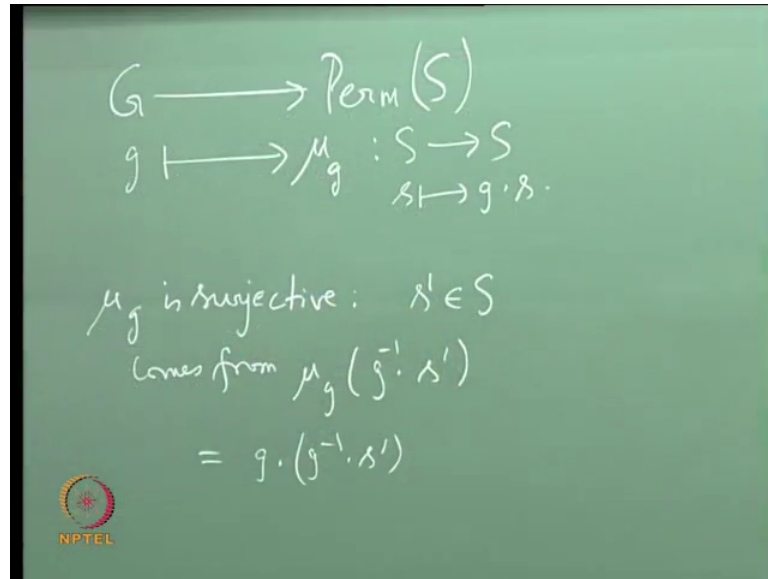 G ⟶ Perm(S)
g ⟼ μ_g : S → S
s ⟼ g·s.
μ_g is surjective: s' ∈ S
Comes from μ_g (g⁻¹·s')
= g·(g⁻¹·s')
NPTEL